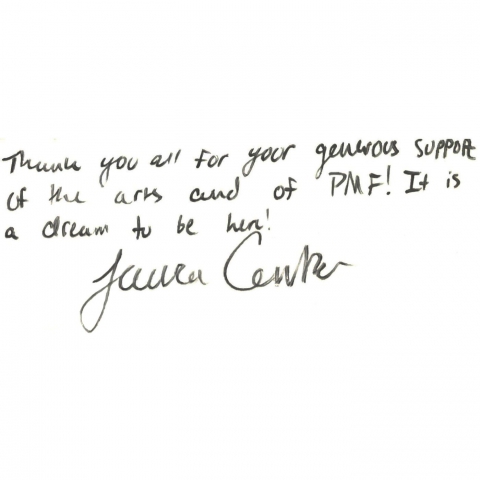 Thank you all for your generous support
of the arts and of PMF! It is
a dream to be here!